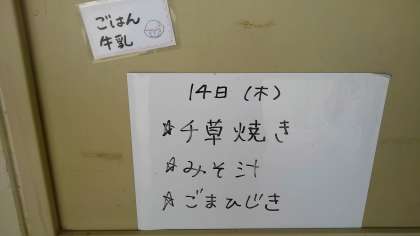 ごはん
牛乳
14日(木)
☆千草焼き
☆みそ汁
☆ごまひじき